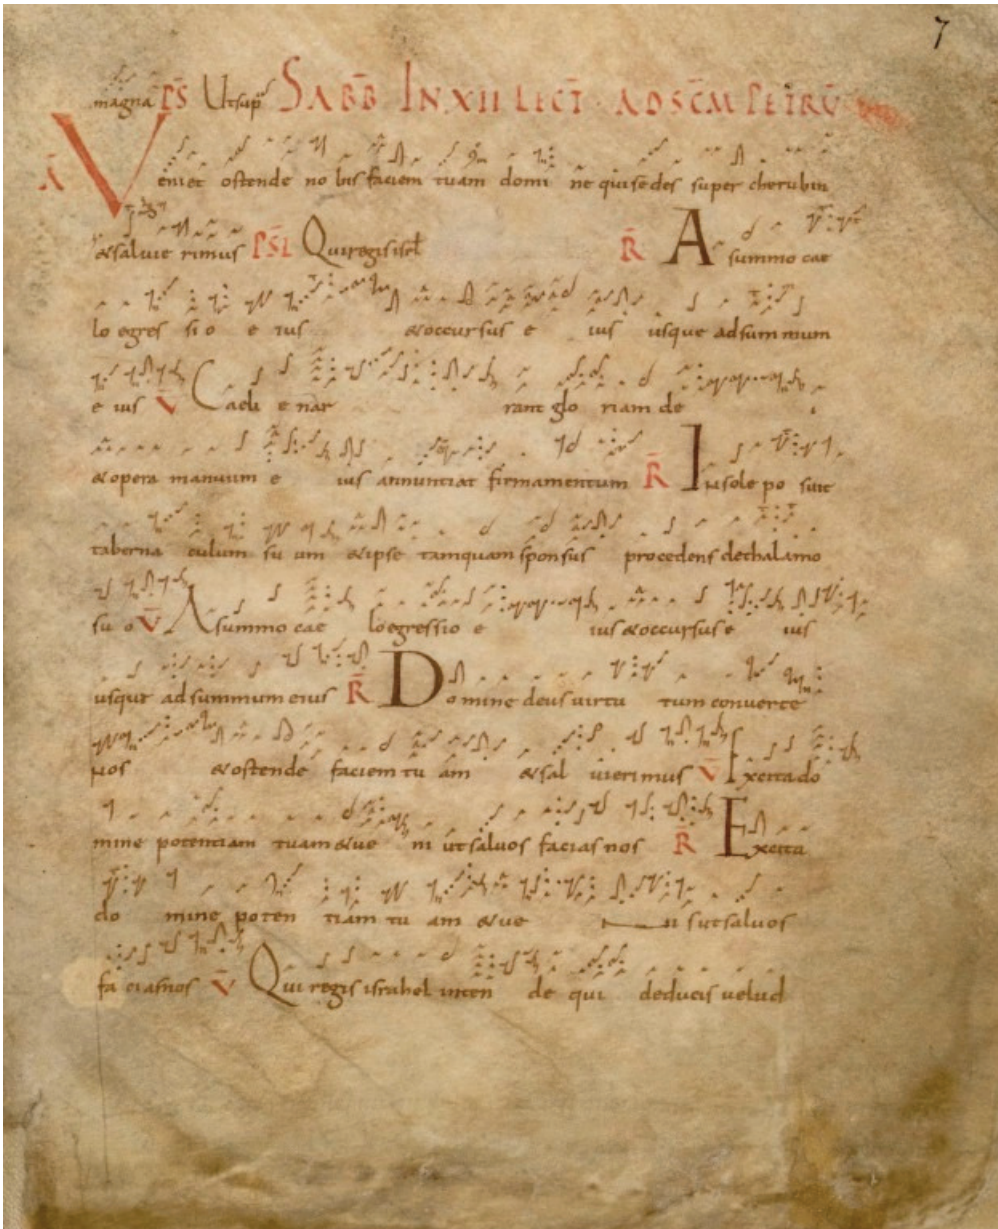 7
magna PS Utsup SABB IN XII LECT ADSCM PETRU
A Veni et ostende nobis faciem tuam domi ne qui sedes super cherubin
& salvie rimus PSL Qui regis isrl R A summo cae
lo egres si o e ius & occursus e ius usque ad summum
e ius V Caeli e nar rant glo riam de i
& opera manuum e ius annuntiat firmamentum R In sole po suit
taberna culum su um & ipse tamquam sponsus procedens dethalamo
su o V A summo cae lo egressio e ius & occursus e ius
usque ad summum eius R Domine deus virtu tum converte
nos & ostende faciem tu am & sal vierimus V Excita do
mine potentiam tuam & ve ni ut salvos facias nos R Excita
do mine poten tiam tu am & ve ni ut salvos
fa cias nos V Qui regis israhel inten de qui deducis velud